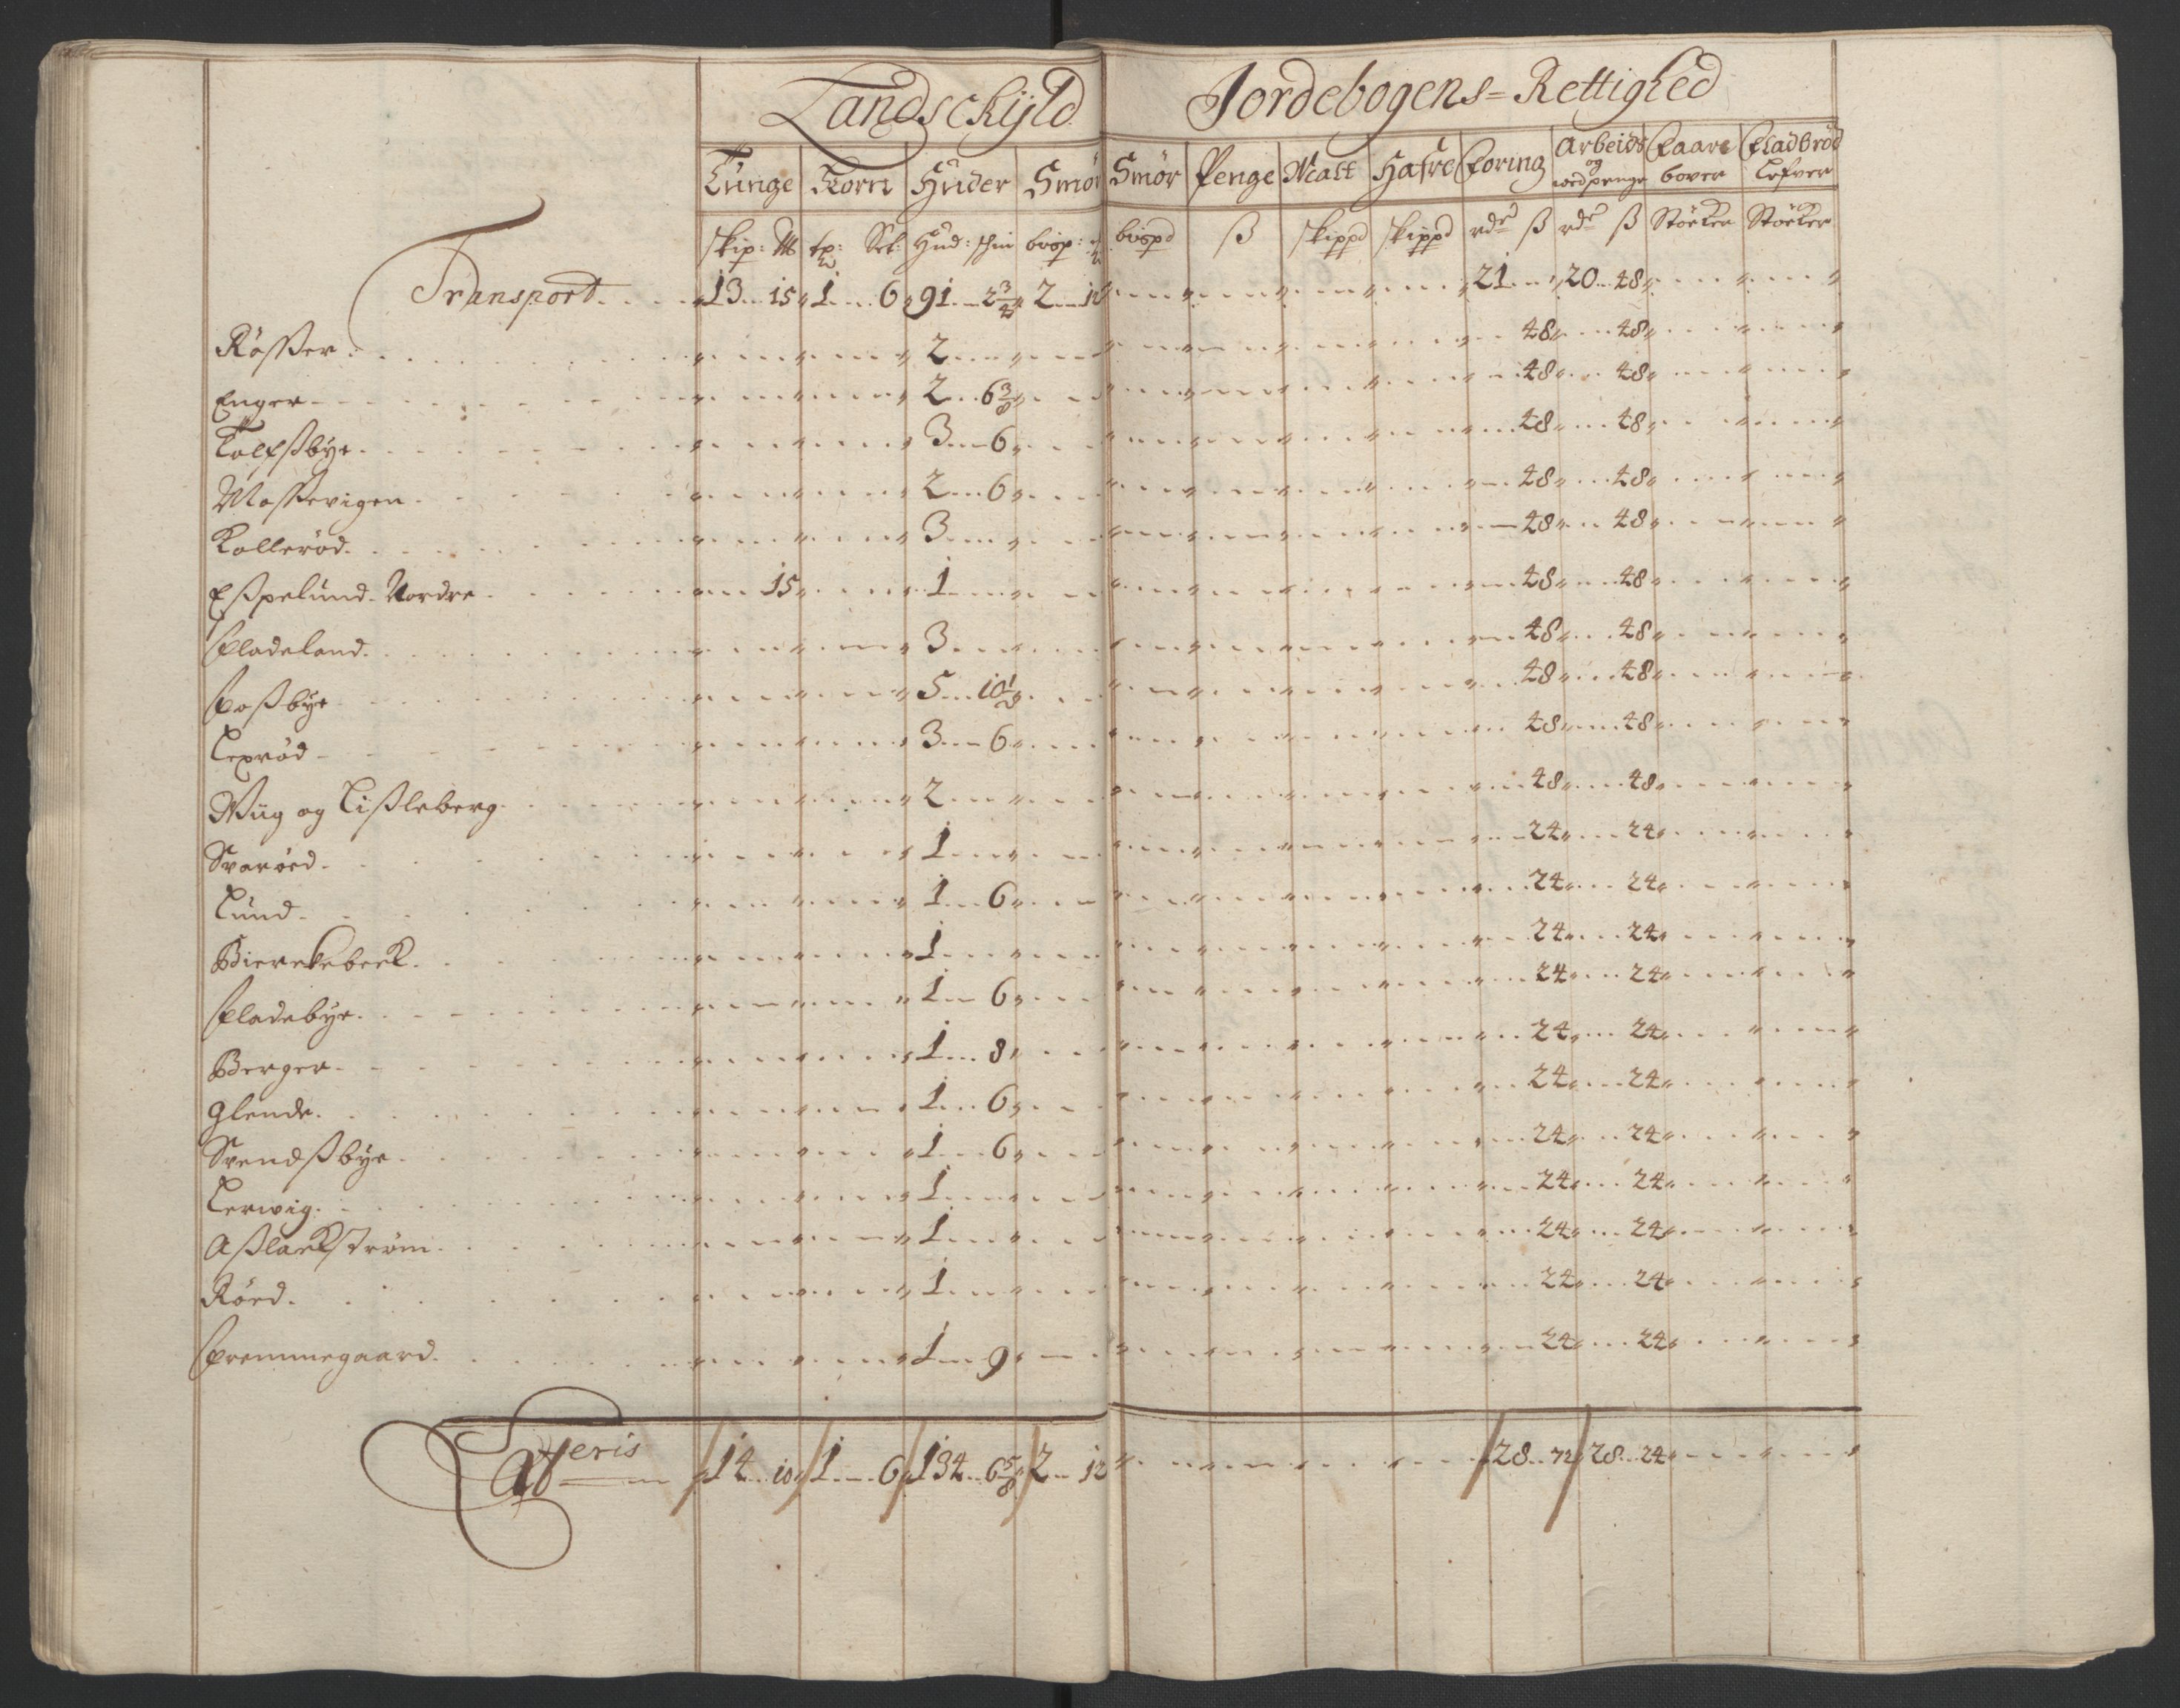 Landschÿld Jordebogens=Rettighed
Tunge Korn Huder Smör Smør Penge Malt Hafre Foring Arbeids og wedpenge Faare bover Fladbrød Lefver
skip: tp: Set: Hud: schin bvsp: bvspd ß skippd skippd rdr ß rdr ß Støcker Støcker
Transport 13 15 1 6 91 2 3/4 2 12 21 20 48
Røsser 2 48 48
Enger 2 6 3/8 48 48
Tolfsbÿe 3 6 48 48
Mossevigen 2 6 48 48
Kollerød 3 48 48
Eßpelund Nordre 15 1 48 48
Fladeland 3 48 48
Foßbÿe 5 10 1/2 48 48
Lexrød 3 6 48 48
Wiig og Lißleberg 2 48 48
Svarøed 1 24 24
Lund 1 6 24 24
Bierckebeck 1 24 24
Fladebÿe 1 6 24 24
Berger 1 8 24 24
Glende 1 6 24 24
Svendßbÿe 1 6 24 24
Lerwig 1 24 24
Aßlackstrøm 1 24 24
Røed 1 24 24
Fremmegaard 1 9 24 24
Latteris 14 10 1 6 134 6 5/8 2 12 28 72 28 24